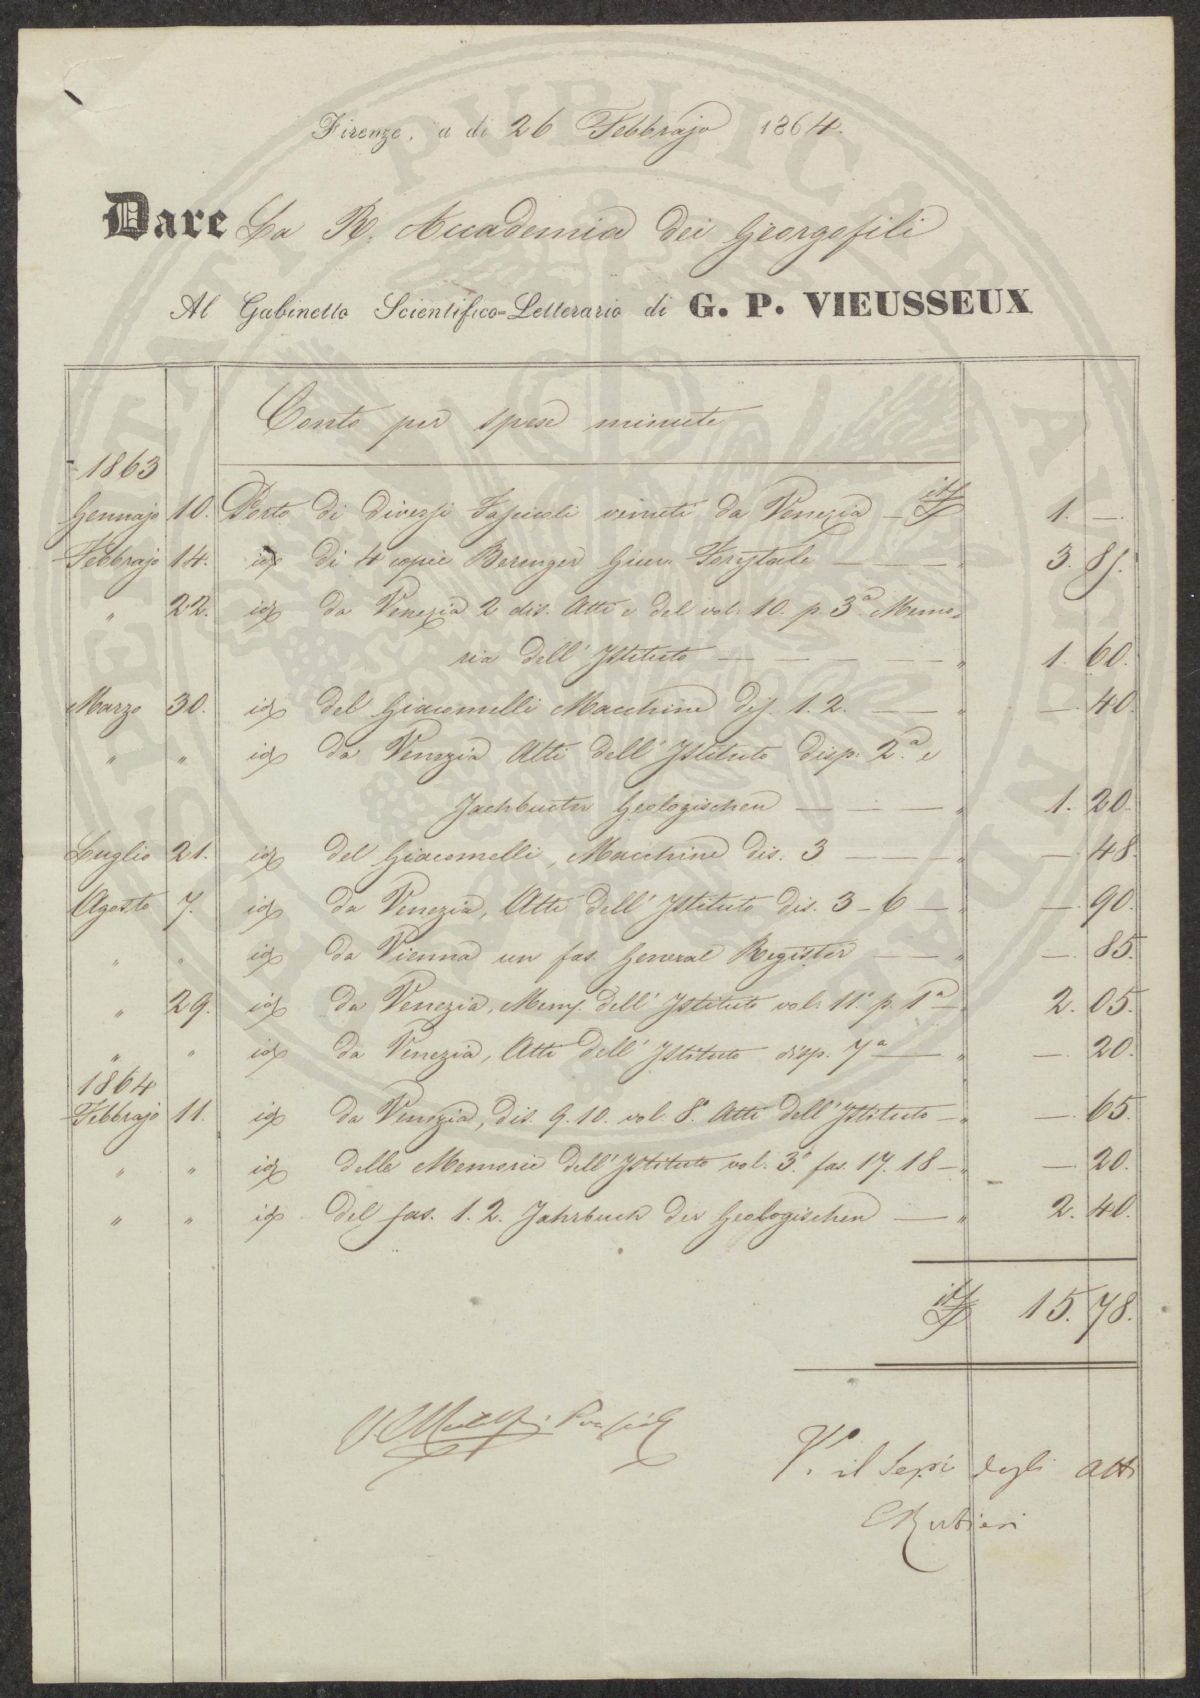 Firenze, a dì 26 Febbrajo 1864.
Dare La R. Accademia dei Georgofili
Al Gabinetto Scientifico=Letterario di G. P. VIEUSSEUX
Conto per spese minute
1863
Gennajo 10. Porto di diversi fascicoli venuti da Venezia — 1. —
Febbrajo 14. id di 4 copie Berenger Giur. Forestale — " 3. 85.
" 22. id da Venezia 2 dis. Atti e del vol. 10. p. 3ª Memo-
ria dell' Istituto — " 1. 60.
Marzo 30. id del Giacomelli Macchine dis. 1. 2. — " —. 40
" " id da Venezia Atti dell' Istituto disp. 2.ª e
Jachbucter Geologischen — " 1. 20.
Luglio 21. id del Giacomelli, Macchine dis. 3 — " —. 48.
Agosto 7. id da Venezia, Atti dell' Istituto dis. 3 - 6 — " —. 90.
" " id da Vienna un fas. General Register — " —. 85.
" 29. id da Venezia, Mem. dell' Istituto vol. 11º p. 1ª — " 2. 05.
" " id da Venezia, Atti dell' Istituto disp. 7ª — " —. 20.
1864
Febbrajo 11. id da Venezia, dis. 9. 10. vol. 8º Atti dell' Istituto — " —. 65.
" " id delle Memorie dell' Istituto vol. 3º fas. 17. 18 — " —. 20.
" " id del fas. 1. 2. Jahrbuch der Geologischen — " 2. 40.
15. 78.
V.º il Segr. degli Atti
E Rubieri